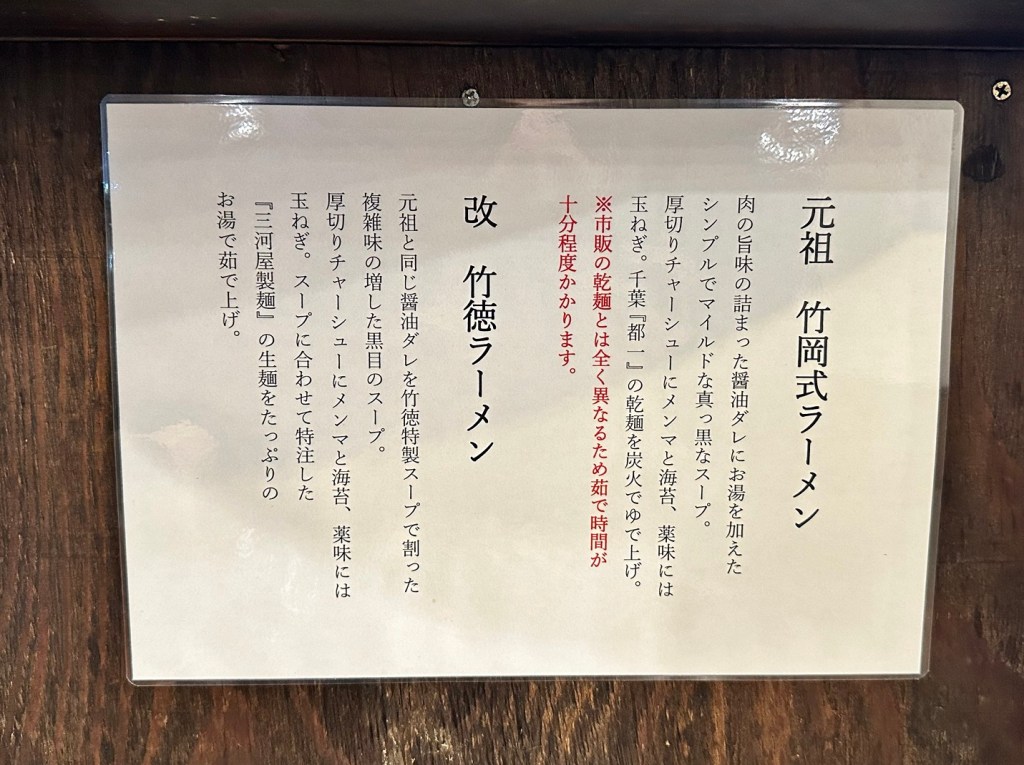 元祖　竹岡式ラーメン
肉の旨味の詰まった醤油ダレにお湯を加えた
シンプルでマイルドな真っ黒なスープ。
厚切りチャーシューにメンマと海苔、薬味には
玉ねぎ。千葉『都一』の乾麺を炭火でゆで上げ。
※市販の乾麺とは全く異なるため茹で時間が
十分程度かかります。
改　竹徳ラーメン
元祖と同じ醤油ダレを竹徳特製スープで割った
複雑味の増した黒目のスープ。
厚切りチャーシューにメンマと海苔、薬味には
玉ねぎ。スープに合わせて特注した
『三河屋製麺』の生麺をたっぷりの
お湯で茹で上げ。